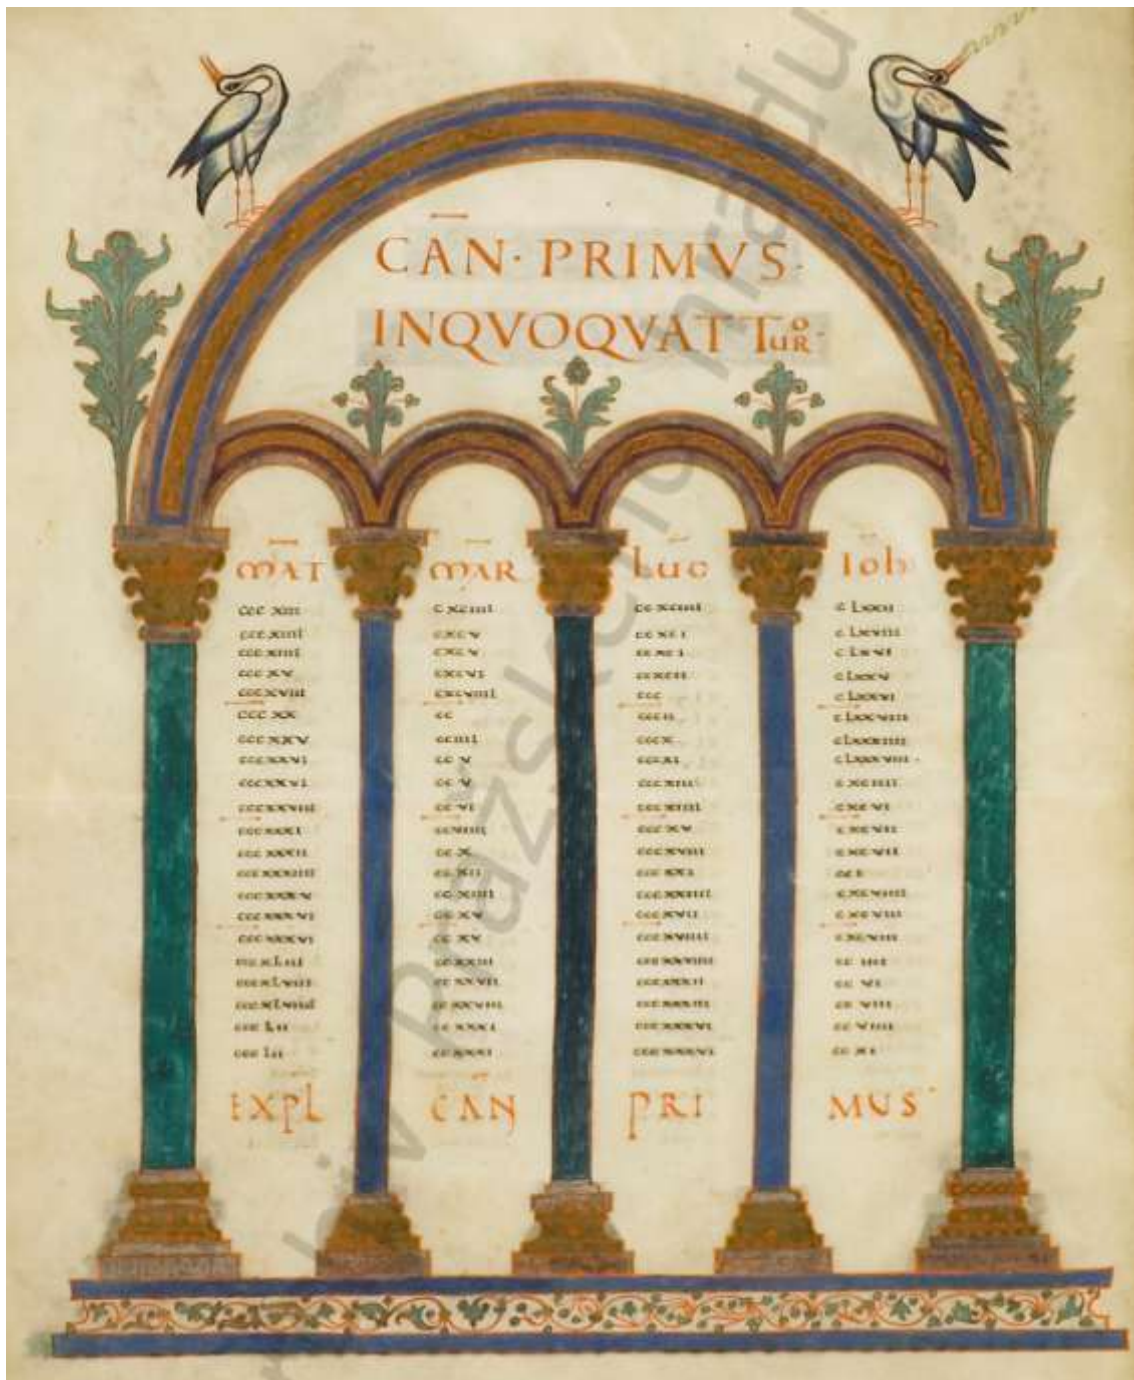 CAN · PRIMVS ·
INQVOQVATTuoR ·
MAT MAR Luc Ioh
ccc xiii c xciiii cc xciiii c Lxxii
ccc xiiii cxcv cc xci c Lxviii
ccc xiiii cxcv cc xci c Lxvi
ccc xv cxcvi ccxcii c Lxxv
ccc xviii cxcviiii ccc c Lxxvi
ccc xx cc cccii c Lxxviii
ccc xxv cciiii cccx c Lxxxiiii
cccxxvi cc v cccxi c Lxxxviii ·
cccxxvi cc v cccxiii c xciiii
cccxxviii cc vi cccxiiii c xcvi
cccxxxi ccviiii ccc xv c xcvii
ccc xxxii cc x cccxviii c xcvii
ccc xxxiiii cc xii ccc xxi cc i
ccc xxxv cc xiiii ccc xxiiii c xcviiii
ccc xxxvi cc xv ccc xvii c xcviii
ccc xxxvi cc xv cccxviiii c xcviii
ccc xLiii cc xxiii ccc xxviiii cc iiii
cccxLviii cc xxvii cccxxxii cc vi
ccc xLviiii cc xxviii cccxxxiii cc viii
ccc Lii cc xxxi ccc xxxvi cc viiii
ccc Lii cc xxxi ccc xxxvi cc xi
EXPL CAN PRI MUS